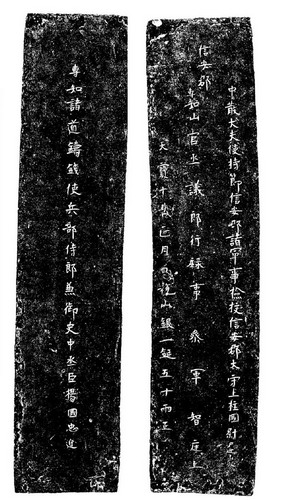 中散大夫使持節信安郡諸軍事檢校信安郡太守上柱國尉
信安郡
專知山官丞議郎行錄事參軍智庭上
天寶十載正月日稅山銀一鋌五十兩正
專知諸道鑄錢使兵部侍郎兼御史中丞臣楊國忠進